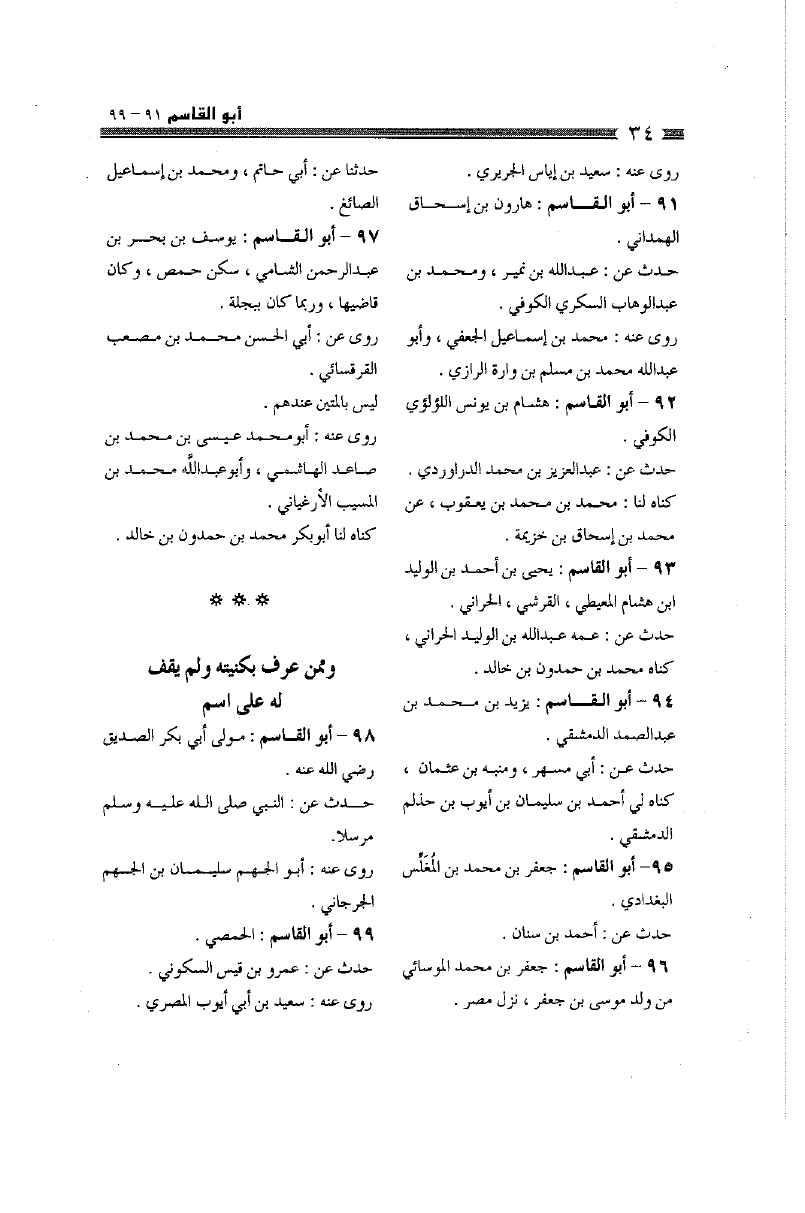 أبو القاسم ٩١ - ٩٩
٣٤
روى عنه : سعيد بن إياس الجريري .
٩١ - أبو القاسم : هارون بن إسحاق
الهمداني .
حدث عن : عبدالله بن نمير ، ومحمد بن
عبدالوهاب السكري الكوفي .
روى عنه : محمد بن إسماعيل الجعفي ، وأبو
عبدالله محمد بن مسلم بن وارة الرازي .
٩٢ - أبو القاسم : هشام بن يونس اللؤلؤي
الكوفي .
حدث عن : عبدالعزيز بن محمد الدراوردي .
كناه لنا : محمد بن محمد بن يعقوب ، عن
محمد بن إسحاق بن خزيمة .
٩٣ - أبو القاسم : يحيى بن أحمد بن الوليد
ابن هشام المعيطي ، القرشي ، الحراني .
حدث عن : عمه عبدالله بن الوليد الحراني ،
كناه محمد بن حمدون بن خالد .
٩٤ - أبو القاسم : يزيد بن محمد بن
عبدالصمد الدمشقي .
حدث عن : أبي مسهر ، ومنبه بن عثمان ،
كناه لي أحمد بن سليمان بن أيوب بن حذلم
الدمشقي .
٩٥- أبو القاسم : جعفر بن محمد بن المُغَلِّس
البغدادي .
حدث عن : أحمد بن سنان .
٩٦ - أبو القاسم : جعفر بن محمد الموسائي
من ولد موسى بن جعفر ، نزل مصر .
حدثنا عن : أبي حاتم ، ومحمد بن إسماعيل
الصائغ .
٩٧ - أبو القاسم : يوسف بن بحر بن
عبدالرحمن الشامي ، سكن حمص ، وكان
قاضيها ، وربما كان بجبلة .
روى عن : أبي الحسن محمد بن مصعب
القرقسائي .
ليس بالمتين عندهم .
روى عنه : أبومحمد عيسى بن محمد بن
صاعد الهاشمي ، وأبوعبداللَّه محمد بن
المسيب الأرغياني .
كناه لنا أبوبكر محمد بن حمدون بن خالد .
* * *
وممن عرف بكنيته ولم يقف
له على اسم
٩٨ - أبو القاسم : مولى أبي بكر الصديق
رضي الله عنه .
حدث عن : النبي صلى الله عليه وسلم
مرسلا.
روى عنه : أبو الجهم سليمان بن الجهم
الجرجاني .
٩٩ - أبو القاسم : الحمصي .
حدث عن : عمرو بن قيس السكوني .
روى عنه : سعيد بن أبي أيوب المصري .